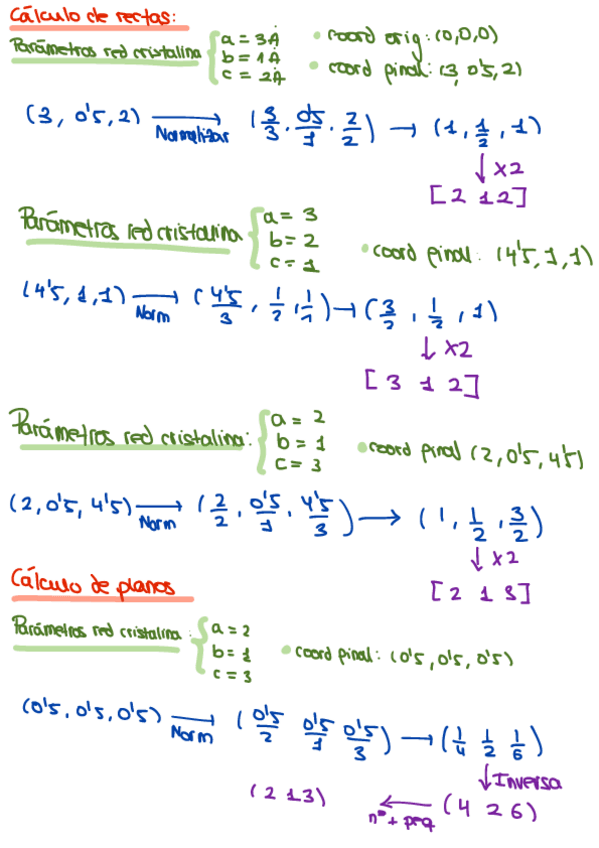 Cálculo de rectas:
Parámetros red cristalina { a = 3Å • coord orig: (0,0,0)
b = 1Å
c = 2Å • coord final: (3, 0'5, 2)
(3, 0'5, 2) → Normalizar (3/3, 0'5/1, 2/2) → (1, 1/2, 1)
↓ x2
[2 1 2]
Parámetros red cristalina { a = 3
b = 2 • coord final: (4'5, 1, 1)
c = 1
(4'5, 1, 1) → Norm (4'5/3, 1/2, 1/1) → (3/2, 1/2, 1)
↓ x2
[3 1 2]
Parámetros red cristalina: { a = 2
b = 1 • coord final (2, 0'5, 4'5)
c = 3
(2, 0'5, 4'5) → Norm (2/2, 0'5/1, 4'5/3) → (1, 1/2, 3/2)
↓ x2
[2 1 3]
Cálculo de planos
Parámetros red cristalina: { a = 2
b = 1 • coord final: (0'5, 0'5, 0'5)
c = 3
(0'5, 0'5, 0'5) → Norm (0'5/2 0'5/1 0'5/3) → (1/4 1/2 1/6)
↓ Inversa
(2 1 3) ← nº + peq (4 2 6)